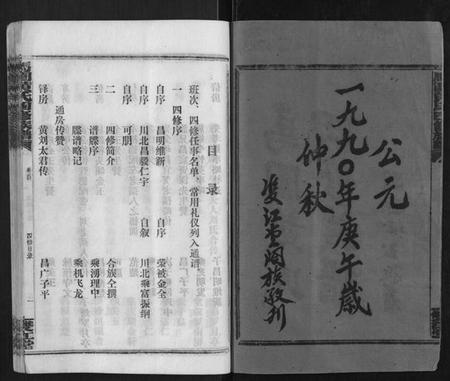 公元
一九九〇年庚午歲
仲秋
双江
族敬刊
目录
班次、四修任事名单、常用礼仪列入通谱
一 四修序
自序 昌明维新 自序 荣被金全
自序 川北昌毅仁宇 自叙 川北乘富振纲
自序 可朋
二 四修简介 合族全撰
三 谱牒序 乘湧理中
牒谱略记 乘机飞龙
通房传赞
铎房 黄刘太君传 昌广子平
四修目录
一